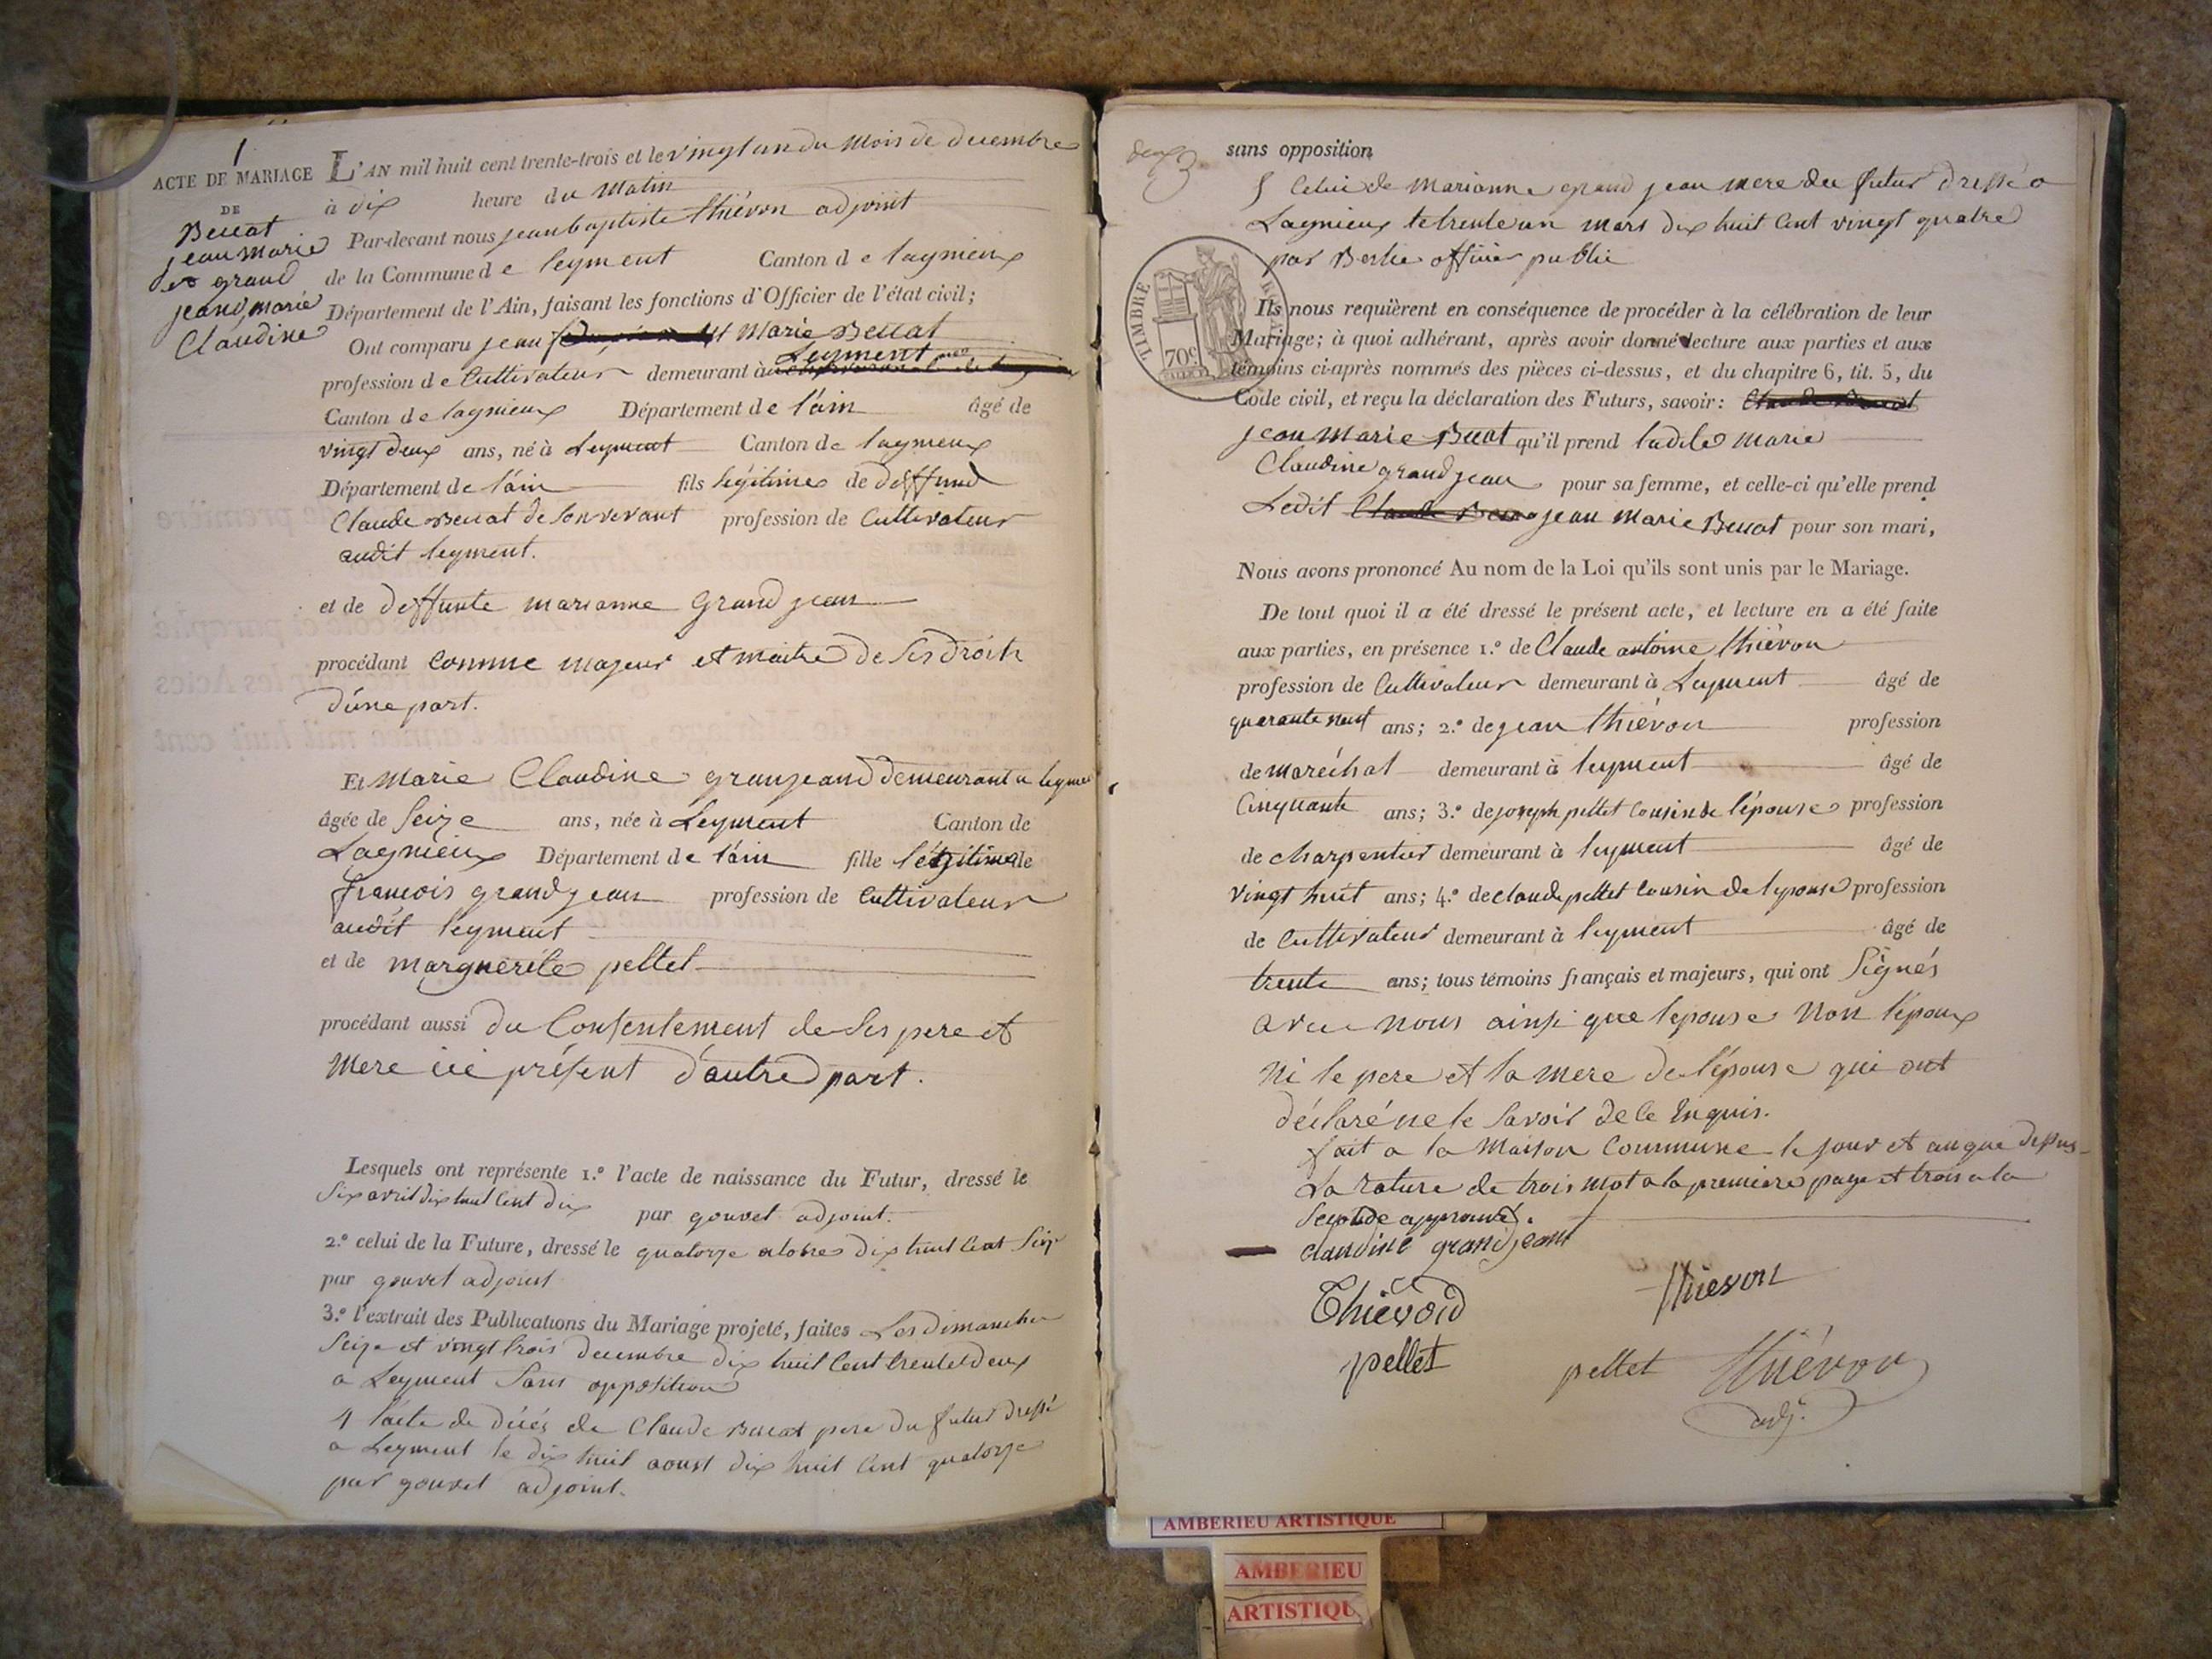 1
ACTE DE MARIAGE
DE
Beccat
jean marie
et grand
jean, marie
Claudine
L'AN mil huit cent trente-trois et le vingt un du mois de decembre
à dix heure du matin
Par-devant nous jean baptiste thiévon adjoint
de la Commune de leyment Canton de lagnieux
Département de l'Ain, faisant les fonctions d'Officier de l'état civil;
Ont comparu jean Marie Beccat
profession de Cultivateur demeurant à Leyment
Canton de lagnieux Département de l'ain âgé de
vingt deux ans, né à Leyment Canton de lagnieux
Département de l'ain fils légitime de deffund
Claude Beccat de son vivant profession de Cultivateur
audit leyment.
et de deffunte marianne Grand jean
procédant comme majeur et maitre de ses droits
d'une part.
Et Marie Claudine granjeand demeurant a leyment
âgée de Seize ans, née à Leyment Canton de
Lagnieux Département de l'ain fille légitime de
françois grand jean profession de Cultivateur
audit leyment
et de marguerite pellet
procédant aussi du Consentement de ses pere et
mere ici présent d'autre part.
Lesquels ont représente 1.º l'acte de naissance du Futur, dressé le
Six avril dix huit cent dix par gouvet adjoint.
2.º celui de la Future, dressé le quatorze octobre dix huit cent Seize
par gouvet adjoint
3.º l'extrait des Publications du Mariage projeté, faites Les dimanches
Seize et vingt trois decembre dix huit cent trente deux
a Leyment Sans opposition
4 l'acte de décés de Claude Beccat pere du futur dressé
a Leyment le dix huit aoust dix huit cent quatorze
par gouvet adjoint.
deux
3
sans opposition
5 Celui de marianne grand jean mere du futur dressé a
Lagnieux le trente un mars dix huit cent vingt quatre
par officier public
TIMBRE
70c
Ils nous requièrent en conséquence de procéder à la célébration de leur
Mariage; à quoi adhérant, après avoir donné lecture aux parties et aux
témoins ci-après nommés des pièces ci-dessus, et du chapitre 6, tit. 5, du
Code civil, et reçu la déclaration des Futurs, savoir:
jean Marie Beccat qu'il prend ladite Marie
Claudine grand jean pour sa femme, et celle-ci qu'elle prend
Ledit jean Marie Beccat pour son mari,
Nous avons prononcé Au nom de la Loi qu'ils sont unis par le Mariage.
De tout quoi il a été dressé le présent acte, et lecture en a été faite
aux parties, en présence 1.º de Claude antoine thiévon
profession de Cultivateur demeurant à Leyment âgé de
quarante neuf ans; 2.º de jean thiévon profession
de maréchal demeurant à leyment âgé de
Cinquante ans; 3.º de joseph pellet cousin de l'épouse profession
de charpentier demeurant à leyment âgé de
vingt huit ans; 4.º de claude pellet cousin de lepouse profession
de Cultivateur demeurant à leyment âgé de
trente ans; tous témoins français et majeurs, qui ont Signés
avec nous ainsi que lepouse non l'époux
ni le pere et la mere de l'épouse qui ont
déclaré ne le savoir de ce Enquis.
fait a la Maison Commune le jour et an que dessus
La rature de trois mot a la premiere page et trois a la
Seconde approuvé.
claudine grandjeant
Thiévoid
thievon
pellet
pellet
thiévon
adj.
AMBERIEU ARTISTIQUE
AMBERIEU
ARTISTIQU